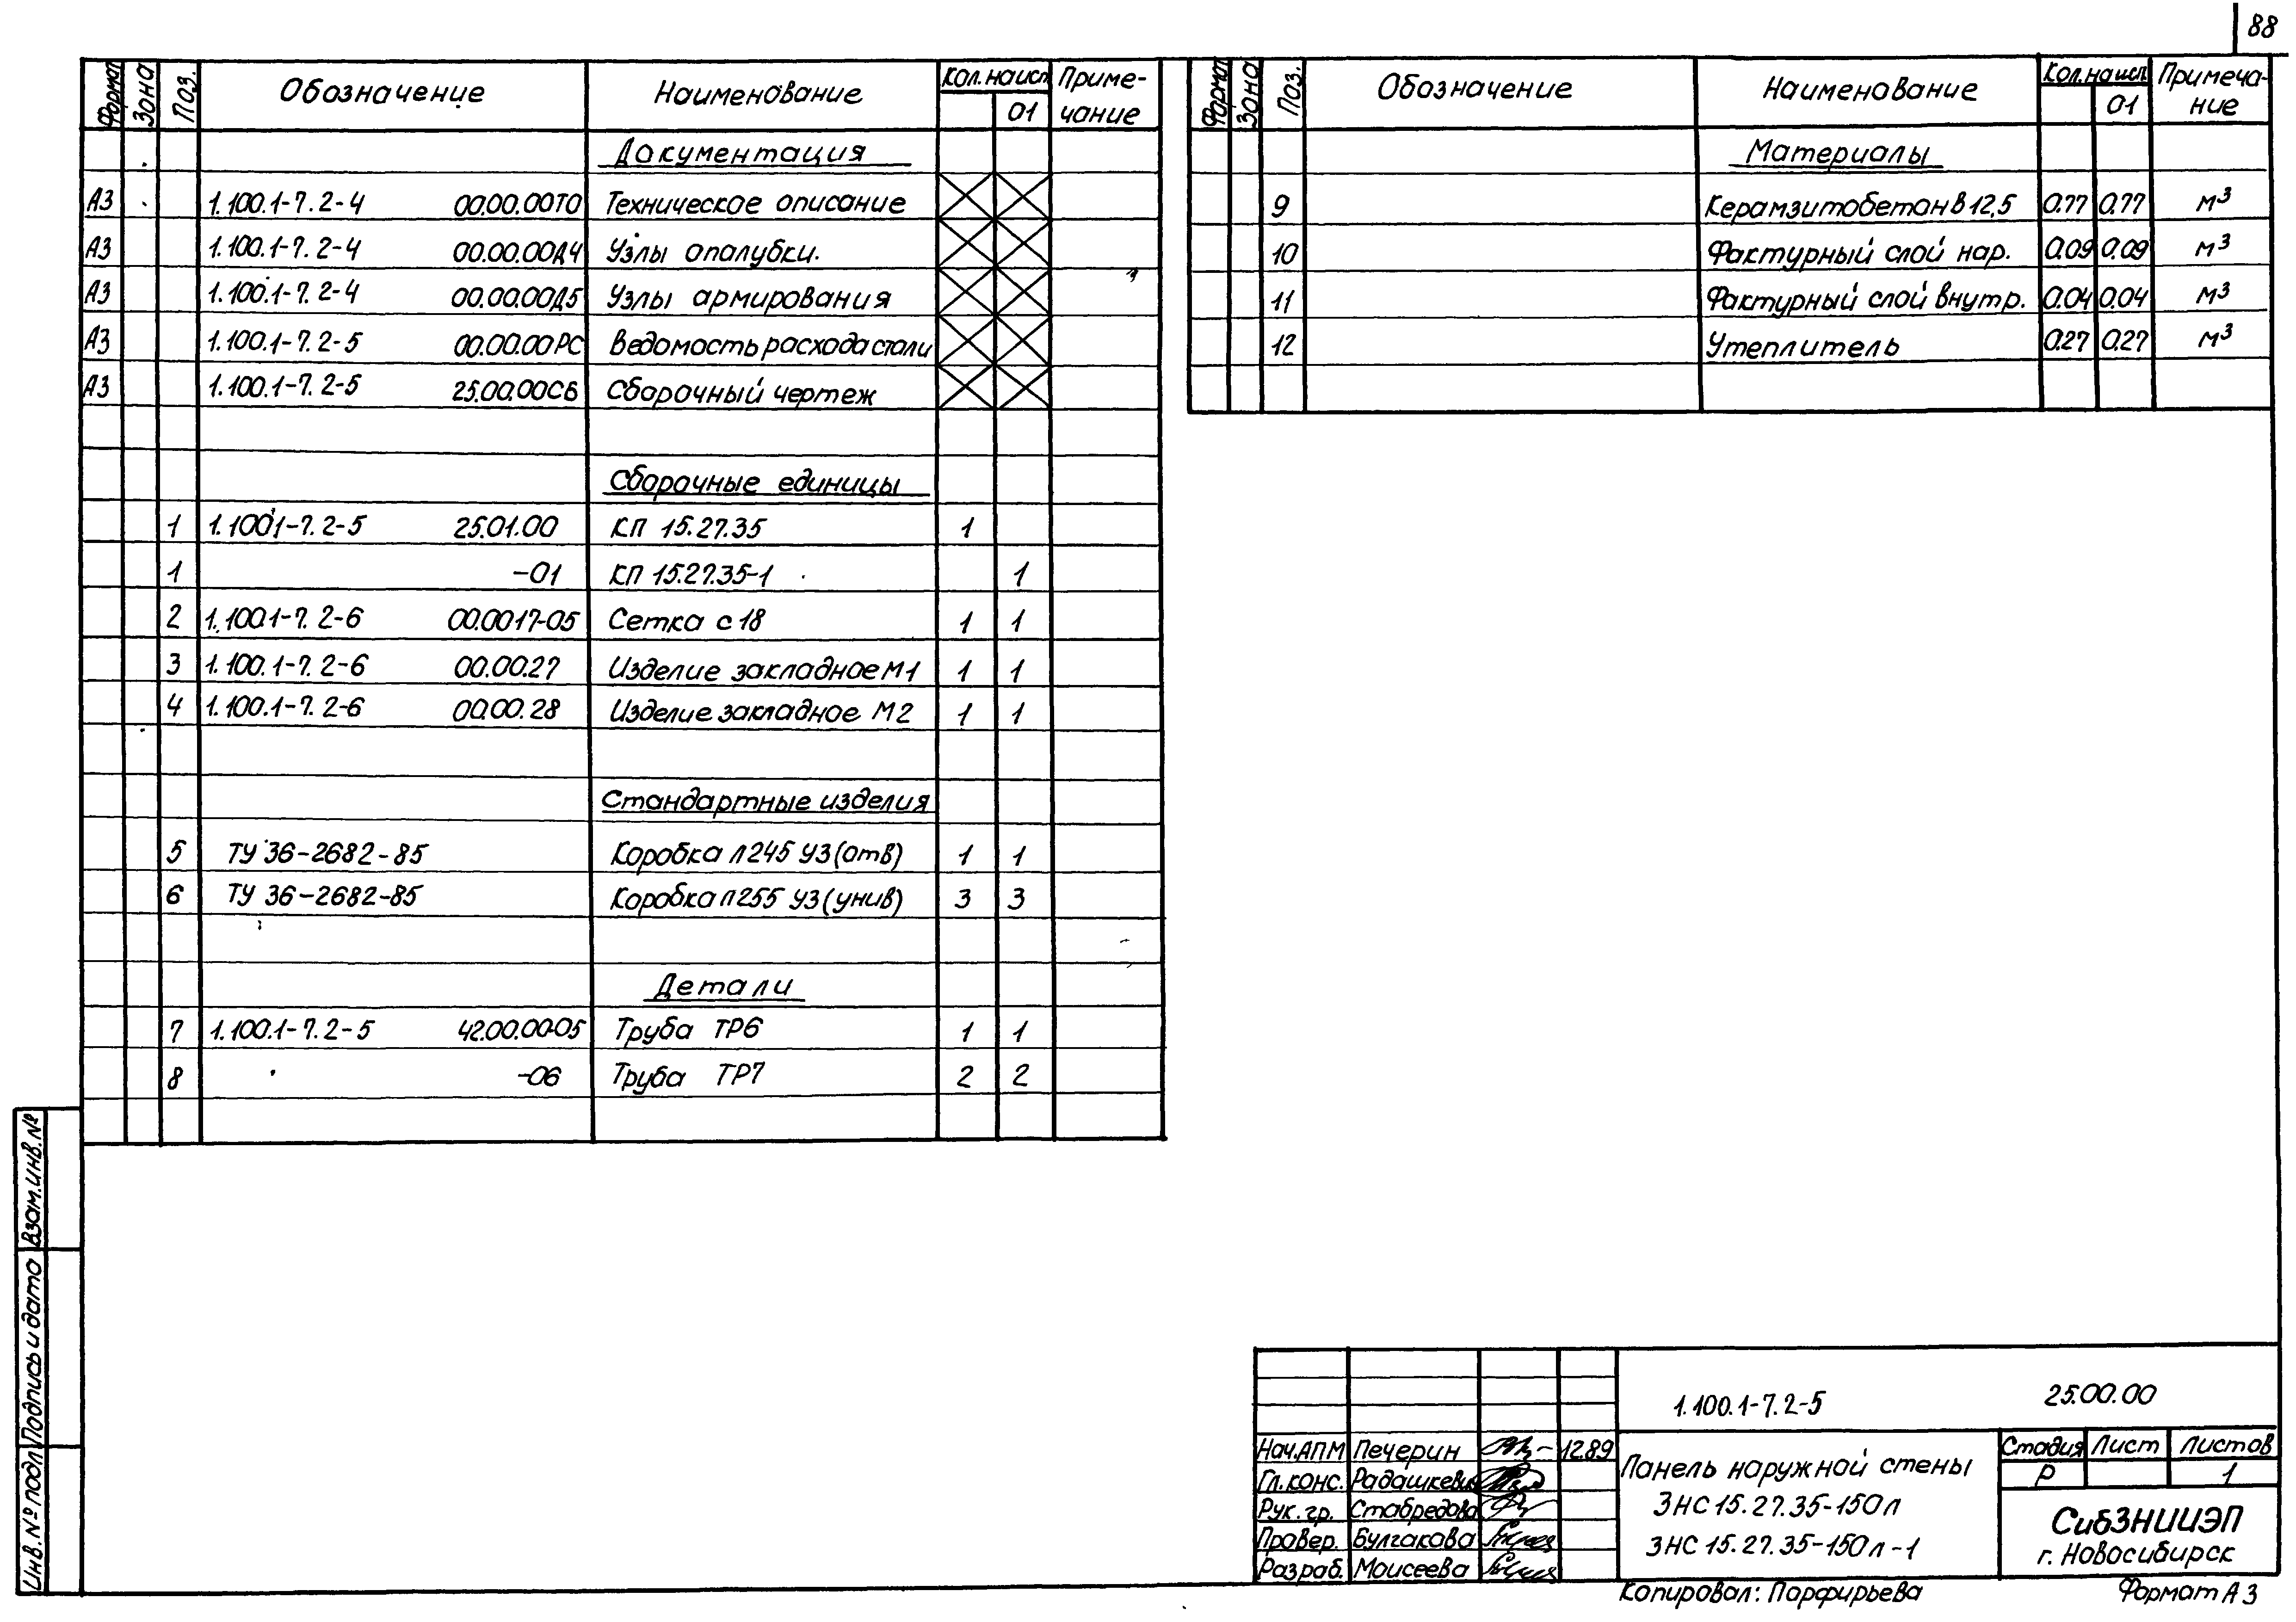 88
Формат Зона Поз. Обозначение Наименование Кол. на исп. Примечание
01
Документация
А3 1.100.1-7.2-4 00.00.00ТО Техническое описание
А3 1.100.1-7.2-4 00.00.00Д4 Узлы опалубки.
А3 1.100.1-7.2-4 00.00.00Д5 Узлы армирования
А3 1.100.1-7.2-5 00.00.00РС Ведомость расхода стали
А3 1.100.1-7.2-5 25.00.00СБ Сборочный чертеж
Сборочные единицы
1 1.100.1-7.2-5 25.01.00 КП 15.27.35 1
1 -01 КП 15.27.35-1 1
2 1.100.1-7.2-6 00.00.17-05 Сетка С18 1 1
3 1.100.1-7.2-6 00.00.27 Изделие закладное М1 1 1
4 1.100.1-7.2-6 00.00.28 Изделие закладное М2 1 1
Стандартные изделия
5 ТУ 36-2682-85 Коробка Л245 У3 (отв) 1 1
6 ТУ 36-2682-85 Коробка Л255 У3 (унив) 3 3
Детали
7 1.100.1-7.2-5 42.00.00-05 Труба ТР6 1 1
8 -06 Труба ТР7 2 2
Формат Зона Поз. Обозначение Наименование Кол. на исп. Примечание
01
Материалы
9 Керамзитобетон В 12,5 0.77 0.77 м³
10 Фактурный слой нар. 0.09 0.09 м³
11 Фактурный слой внутр. 0.04 0.04 м³
12 Утеплитель 0.27 0.27 м³
Взам.инв.№
Подпись и дата
Инв.№ подл
1.100.1-7.2-5 25.00.00
Нач.АПМ Печерин 12.89
Гл.конс. Радашкевич
Рук.гр. Стабредова
Провер. Булгакова
Разраб. Моисеева
Панель наружной стены
3НС 15.27.35-150л
3НС 15.27.35-150л-1
Стадия Лист Листов
Р 1
СибЗНИИЭП
г. Новосибирск
Копировал: Парфирьева Формат А3